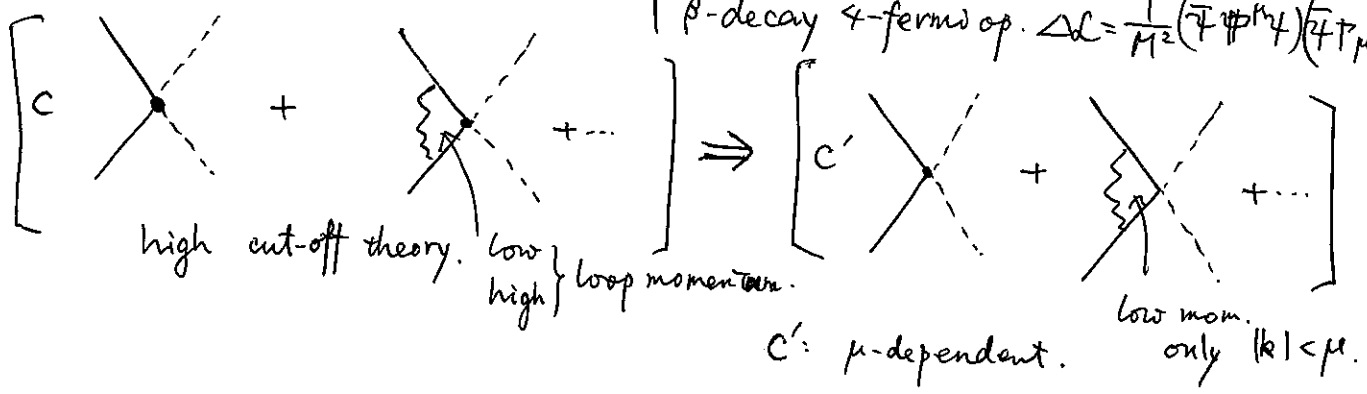 β-decay 4-fermi op. ΔL = 1/M² (Ψ̄ Γ^μ Ψ)(Ψ̄ Γ_μ
[ C + +··· ] ⇒ [ C′ + +··· ]
high cut-off theory. low
high } loop momentum.
low mom.
C′: μ-dependent. only |k|<μ.